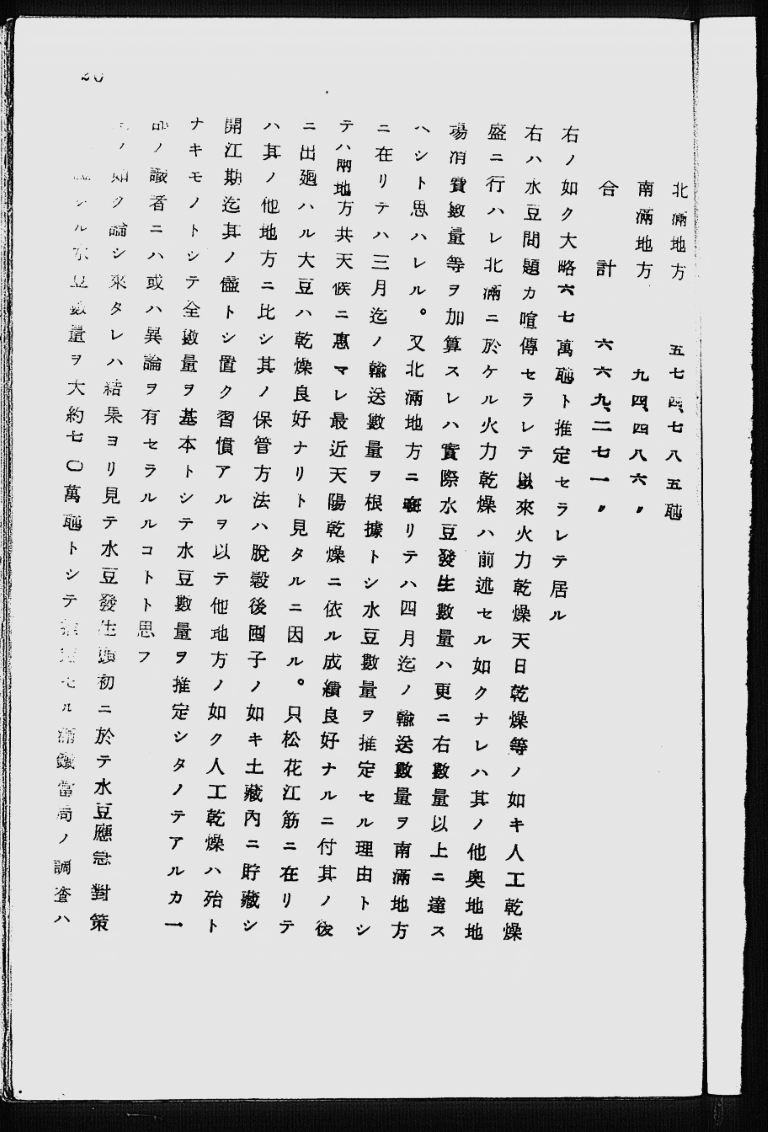 北滿地方　五七四、七八五瓲
南滿地方　九四、四八六〃
合計　六六九、二七一〃
右ノ如ク大略六七萬瓲ト推定セラレテ居ル
右ハ水豆問題カ喧傳セラレテ以來火力乾燥天日乾燥等ノ如キ人工乾燥
盛ニ行ハレ北滿ニ於ケル火力乾燥ハ前述セル如クナレハ其ノ他奧地地
場消費數量等ヲ加算スレハ實際水豆發生數量ハ更ニ右數量以上ニ達ス
ヘシト思ハレル。又北滿地方ニ在リテハ四月迄ノ輸送數量ヲ南滿地方
ニ在リテハ三月迄ノ輸送數量ヲ根據トシ水豆數量ヲ推定セル理由トシ
テハ兩地方共天候ニ惠マレ最近天陽乾燥ニ依ル成績良好ナルニ付其ノ後
ニ出廻ハル大豆ハ乾燥良好ナリト見タルニ因ル。只松花江筋ニ在リテ
ハ其ノ他地方ニ比シ其ノ保管方法ハ脫穀後囤子ノ如キ土藏內ニ貯藏シ
開江期迄其ノ儘トシ置ク習慣アルヲ以テ他地方ノ如ク人工乾燥ハ殆ト
ナキモノトシテ全數量ヲ基本トシテ水豆數量ヲ推定シタノテアルカ一
部ノ識者ニハ或ハ異論ヲ有セラルルコトト思フ
ノ如ク論シ來タレハ結果ヨリ見テ水豆發生頭初ニ於テ水豆應急對策
シル水豆數量ヲ大約七〇萬瓲トシテセル滿鐵當局ノ調査ハ
20